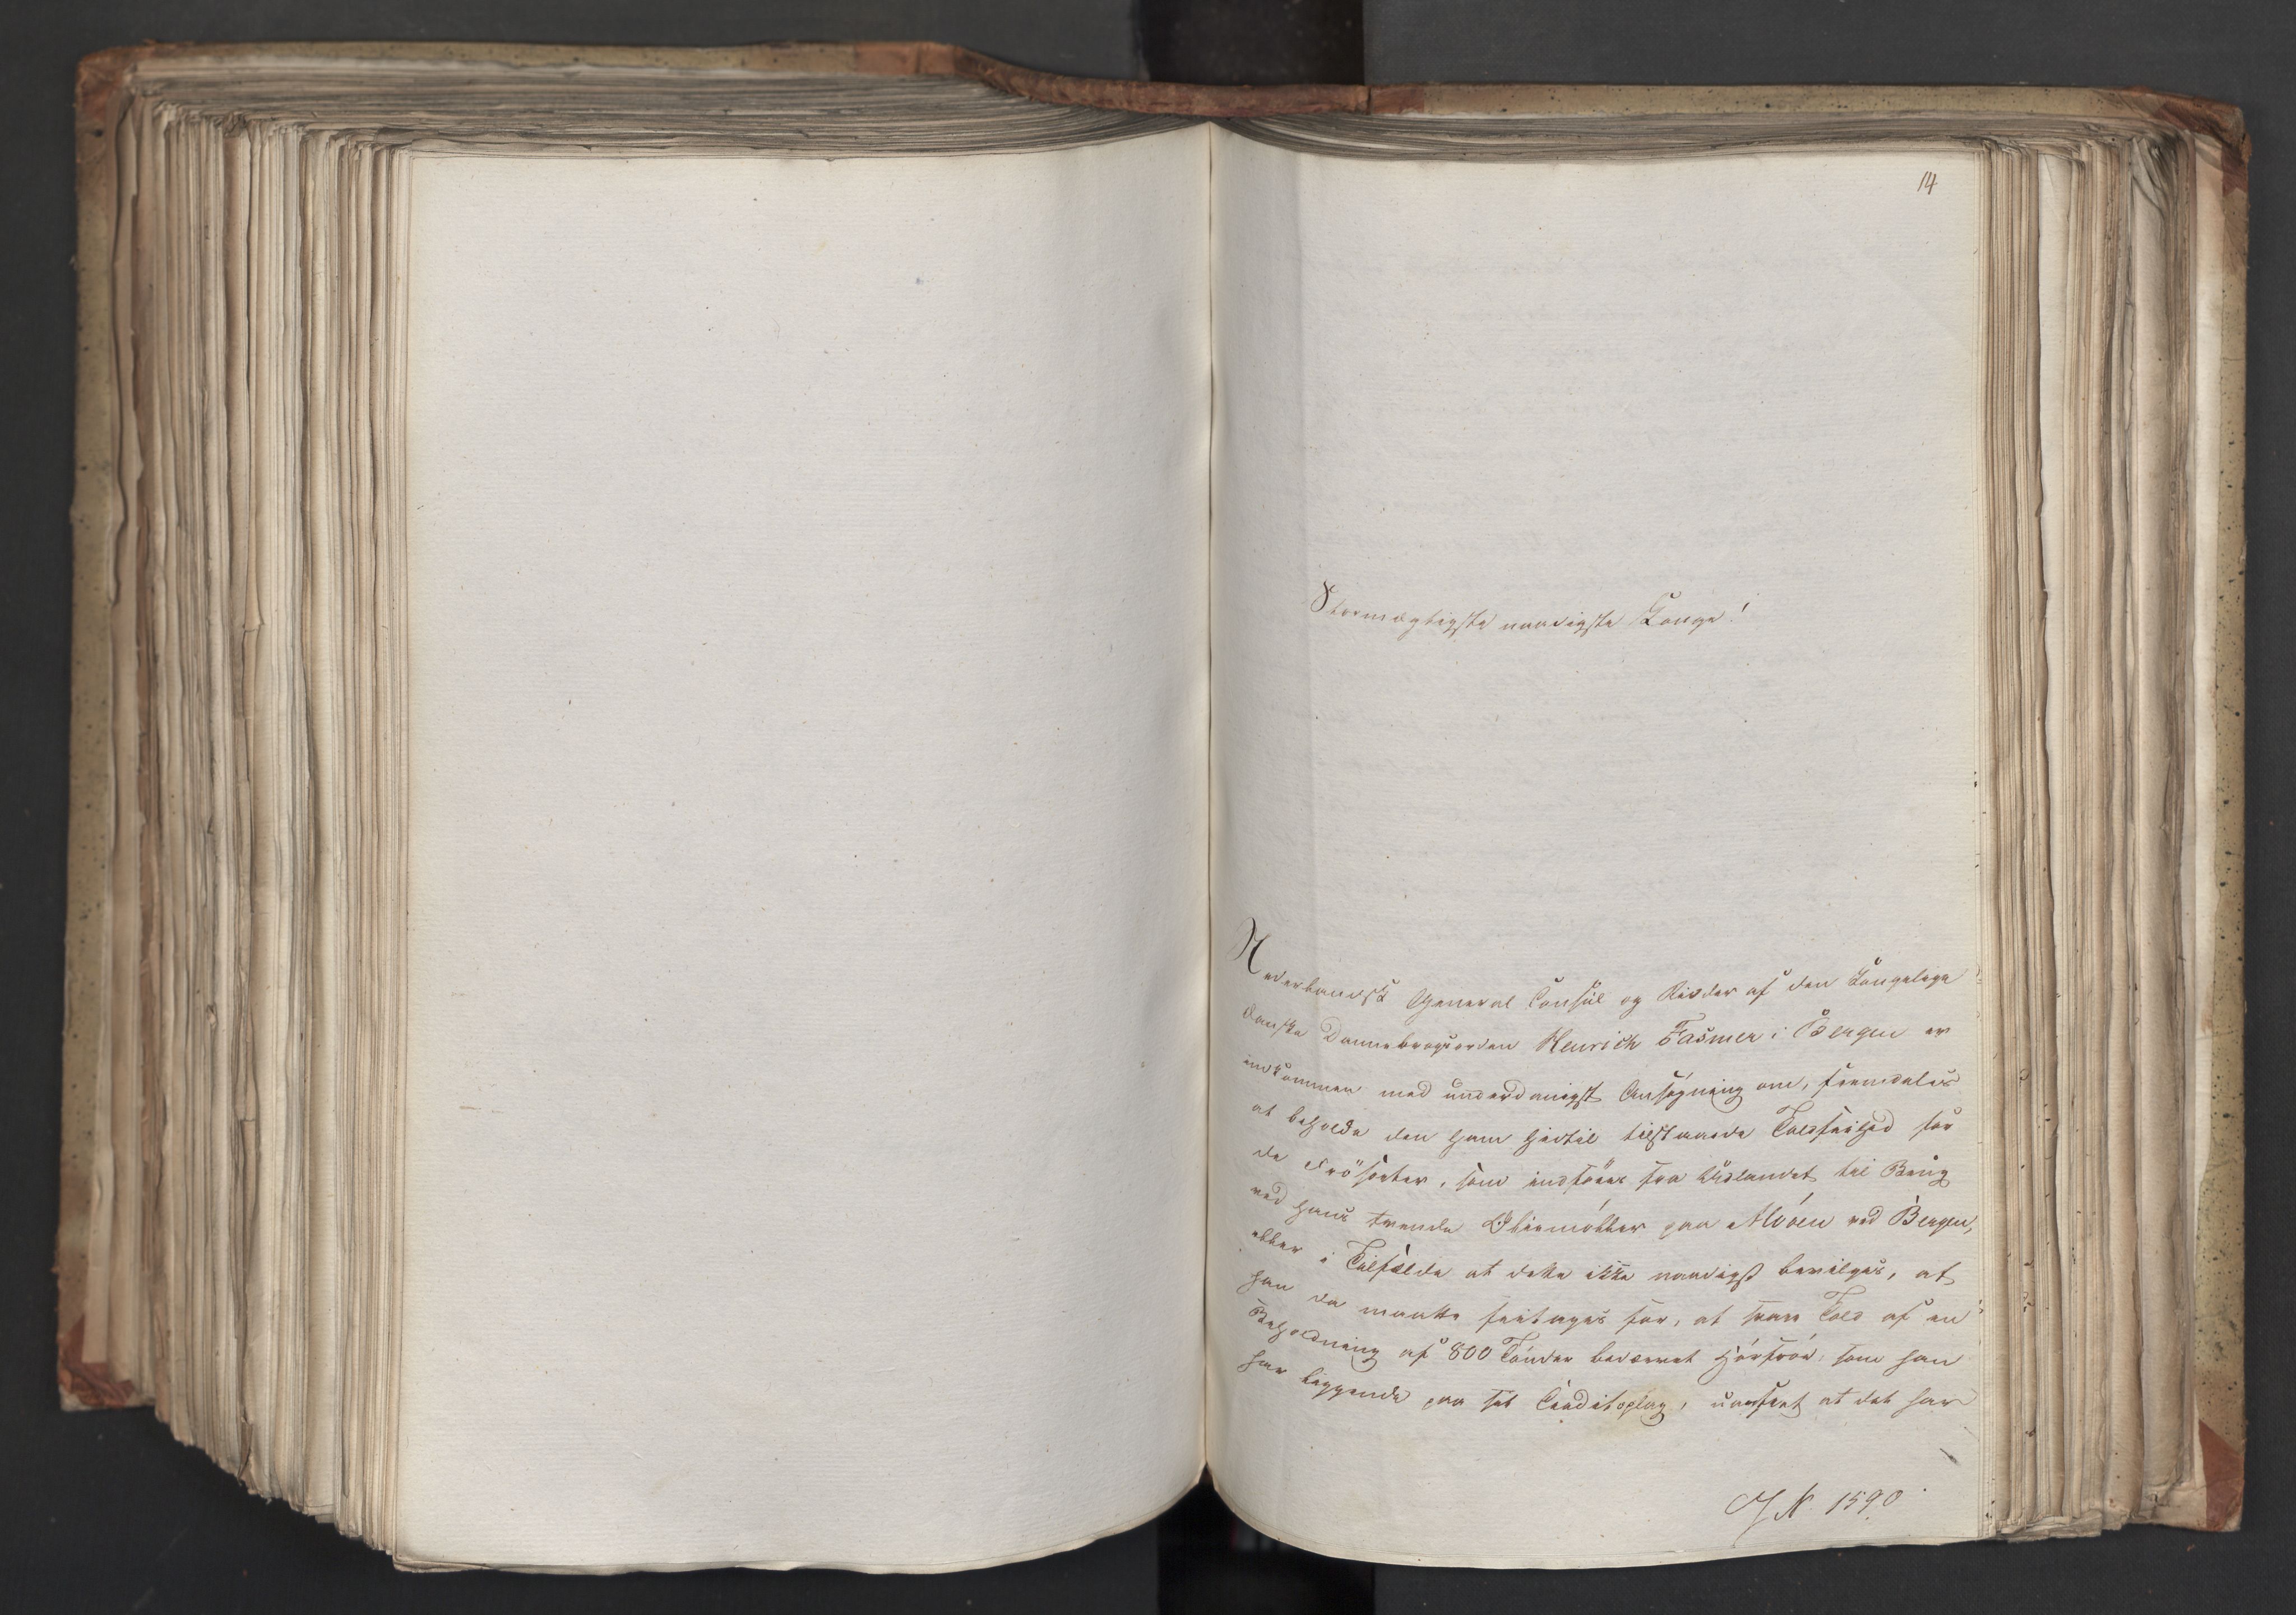 14
Stormægtigste naadigste Konge!
Nederlandsk General Consul og Ridder af den Kongelige
danske Dannebrogsorden Henrich Fasmer i Bergen er
indkommen med underdanigst Ansøgning om, fremdeles
at beholde den ham hidtil tilstaaede Toldfrihed for
de Frösorter, som indföres fra Udlandet til Brug
ved hans trende Oliemöller paa Alvöen ved Bergen,
eller i Tilfælde at dette ikke naadigst bevilges, at
han da maatte fritages for, at svare Told af en
Beholdning af 800 Tönder bedærvet Hörfröe som han
har liggende paa sit Creditoplag, uanseet at det har
J N. 1590